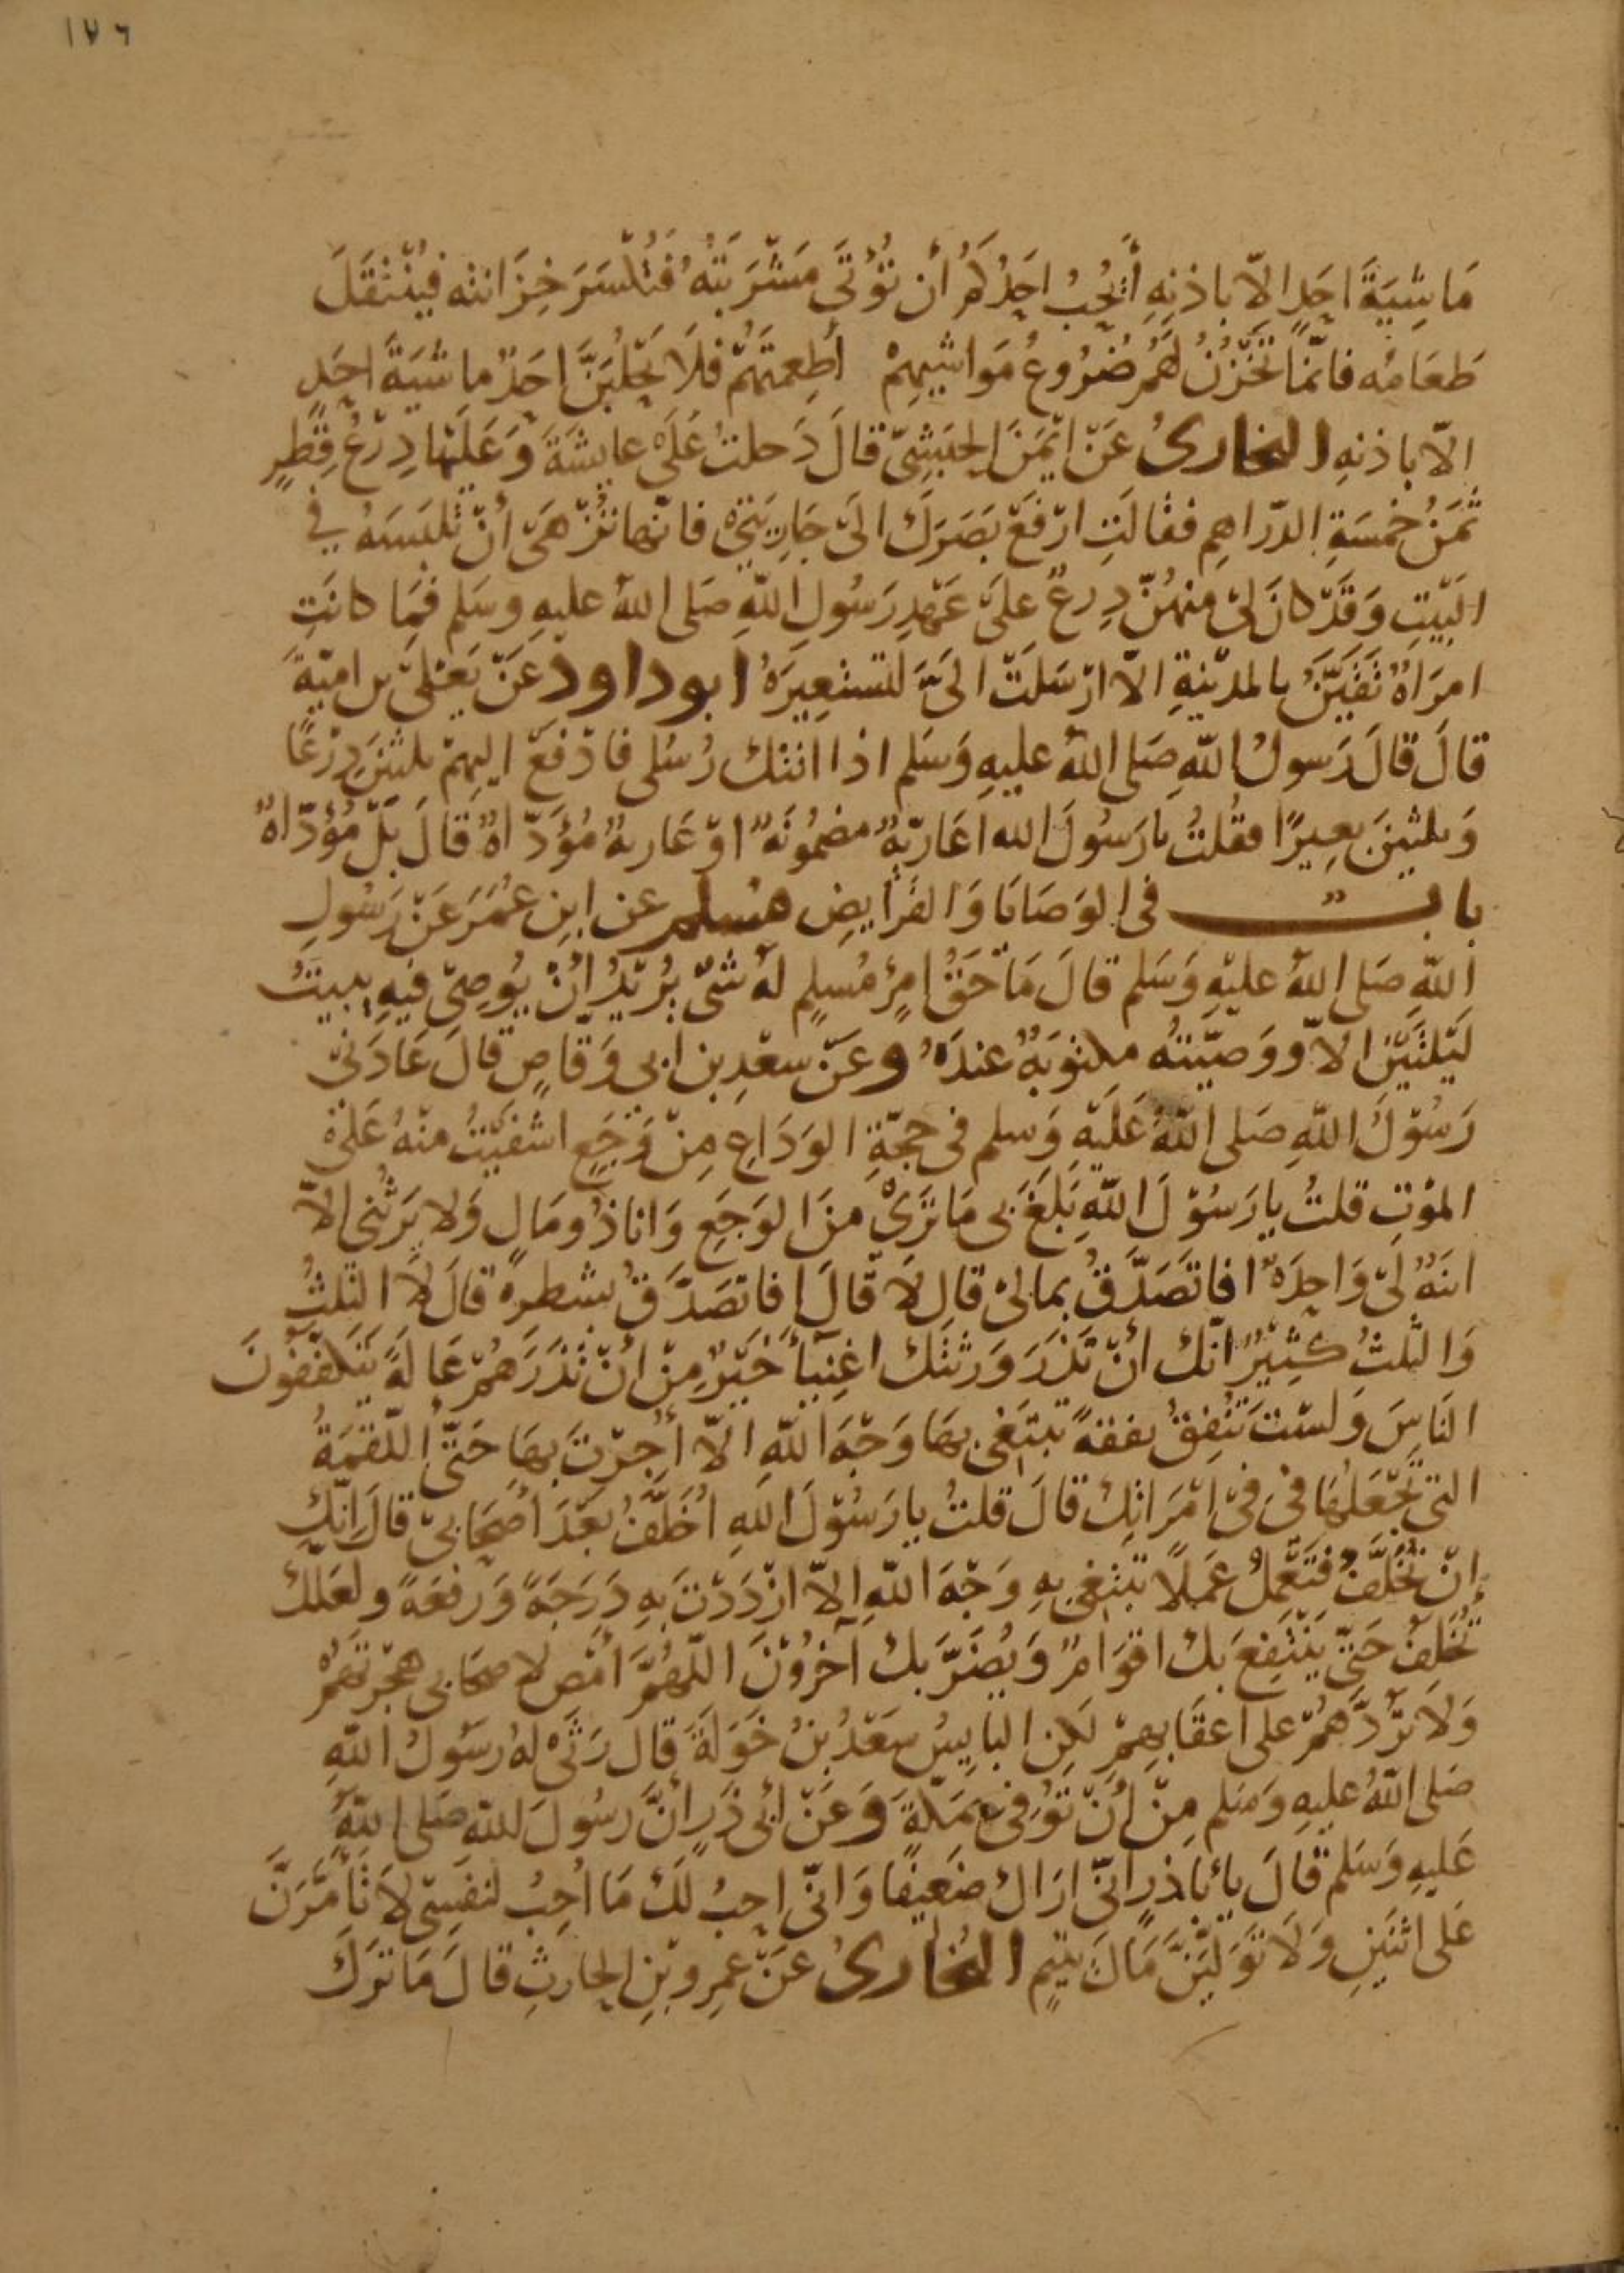 ١٧٦
مَاشِيَةَ اَحَدٍ اِلاّ باِذنِهِ أَيُحِبُ احَدُكُمُ أن تُؤْتَى مَشْرَبَتُهُ فَتُكْسَرَ خِزَانته فيُنْتَقَلَ
طَعَامُه فانّمَا تَخْزُنُ لَهُمْ ضُرُوعُ مَوَاشيهِمْ أطِعمَتَهُمْ فلَا يَحْلُبَنَّ احَدٌ ماشيَةَ احَدٍ
الاّ باذنهِ البخارىُ عَنْ ايْمَنَ الحبَشِىّ قالَ دَخلتُ عَلَى عايشَةَ وَعَلَيْهَا دِرْعُ قِطْرٍ
ثمَنُ خمسَةِ الدّراهِمِ فقالَتِ ارْفَعْ بَصَرَكَ الَى جَارِيَتِىْ فانّها تُزْهَى أنْ تلبَسَهُ في
البَيْتِ وَقَدْ كانَ لِىْ منهُنّ دِرعٌ علىَ عَهْدِ رَسُولِ اللهِ صَلى اللهُ عليهِ وسَلم فمَا كانَتِ
امرَاةٌ تُقَيَّنُ بالمدِيْنةِ الاّ ارْسَلَتْ الَىَّ تستعِيرَهُ ابوداود عَنْ يَعْلىَ بن اميّةَ
قالَ قالَ رَسولُ اللهِ صَلى اللهُ عليهِ وَسَلم اذا اتتك رُسُلى فادْفَعْ اليهِمْ ثلثينَ دِرْعًا
وَثلثينَ بعِيرًا فقُلتُ يا رَسُولَ الله اعَاريّةٌ مضمُونَةٌ اوْ عَاريةٌ مُؤَدّاةٌ قالَ بَلْ مُؤدّاةٌ
بابٌ فى الوَصَايَا وَالفَرَايضِ مسلم عن ابنِ عُمَرَ عَنْ رَسُولِ
اللهِ صَلى اللهُ عليْهِ وَسَلم قالَ مَا حَقُّ امرِئٍ مُسلِمٍ لهُ شَىْ يُرِيْدُ انْ يُوصِىْ فيهِ يبيتُ
لَيْلتَيْنِ الاّ ووَصيّتهُ مكتوبَةٌ عندَهُ وعَنْ سعْدِ بن ابى وَقاصٍ قالَ عَادَنىْ
رَسُوْلُ اللهِ صَلى اللهُ عَلَيْهِ وَسلم فى حجّةِ الوَدَاعِ مِنْ وَجَعٍ اشفَيْتُ منْهُ عَلَى
المَوْتِ قلتُ يا رَسُوْلَ اللهِ بَلَغَ بى مَا تَرَىْ منَ الوَجَعِ وَانا ذُو مَالٍ وَلا يَرثُنى الاّ
ابنَةٌ لِىْ وَاحِدَةٌ افاتَصَدّقُ بمالىْ قال لَا قالَ افاتصَدّقُ بشطرِهِ قالَ لَا الثلثُ
وَالثلثُ كثِيْرٌ انّك أنْ تَذَرَ وَرثتك اغنِيَآءَ خَيْرٌ مِنْ انْ تَذَرَهُمْ عَالةً يَتكَفّفُونَ
النَاسَ وَلسْتَ تنفِقُ نفقةً تبتَغى بهَا وَجْهَ اللهِ الاّ أُجِرْتَ بهَا حَتّى اللّقمَةُ
التى تجعَلهَا فى فىْ امْرَاتِك قالَ قلتُ يا رَسُوْلَ اللهِ أُخَلّفُ بعْدَ اَصحَابىْ قالَ انّك
اِنْ تُخَلَّفَ فتَعْمَلُ عَمَلًا تبتغى بهِ وَجْهَ اللهِ اِلاّ ازْدَدْتَ بهِ دَرَجَةً وَرفعَةً ولعَلّك
تُخَلفُ حَتّى يَنْتَفِعَ بك اقوَامٌ وَيُضَرَّ بك آخرُوْنَ اللّهُمَّ امْض لاصحَابى هجْرتَهُمْ
وَلا تَرُدَّهُمْ على اعقَابهِمْ لكِن البايِسُ سَعْدُ بنُ خَوَلةَ قال رَثَى لهُ رسُولُ اللهِ
صَلى اللهُ عليهِ وَسَلم مِنْ أنْ تُوُفى بِمَكّةَ وَعَنْ أبى ذَرٍ انَّ رسُولَ اللهِ صَلى اللهُ
عَليهِ وَسَلم قالَ يا اباذرٍ انّىْ ارَاك ضعَيفًا وَانّى احِبُ لَك مَا أحِبُ لنفسِىْ لَا تَأمَّرَنَّ
عَلى اثنَينِ وَلَا توَلّيَنَّ مَالَ يتيمٍ البُخَارىُ عَنْ عمرِو بْنِ الحارثِ قالَ مَا ترَكَ